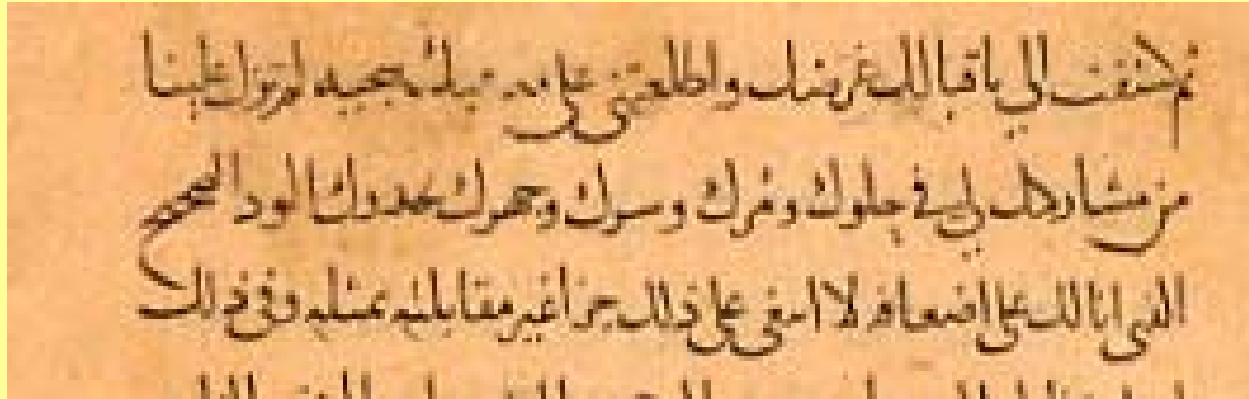 ثم كشفت الي باقبالك غرضك واطلعتني على مذهبك سجيه لم تزل علينا
من مشاركتك لي في حلوك ومرك وسرك وجهرك يحدوك الود الصحيح
الذي انا لك على اضعافه لا ابتغي على ذلك جزا غير مقابلته بمثله وفي ذلك